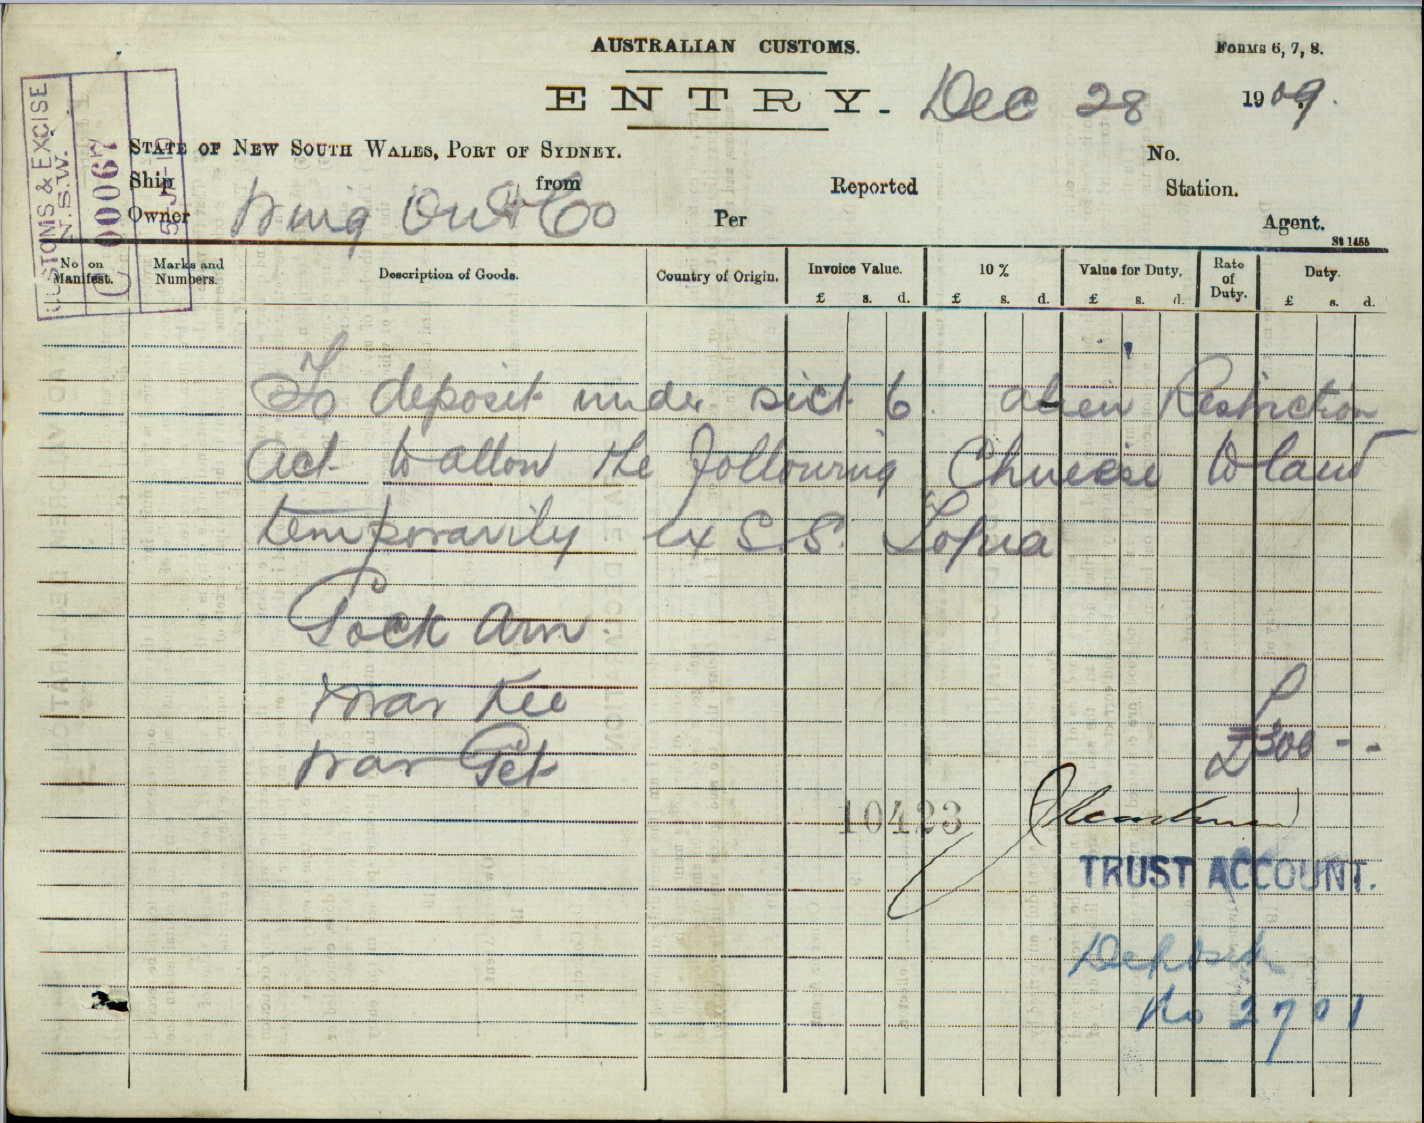 AUSTRALIAN CUSTOMS.
FORMS 6, 7, 8.
ENTRY. Dec 28 1909.
CUSTOMS & EXCISE
N.S.W.
C 00067
5 JA 10
STATE OF NEW SOUTH WALES, PORT OF SYDNEY.
No.
Ship from Reported Station.
Owner Wing On & Co Per Agent.
St 1455
No on Manifest. Marks and Numbers. Description of Goods. Country of Origin. Invoice Value. 10 % Value for Duty. Rate of Duty. Duty.
£ s. d. £ s. d. £ s. d. £ s. d.
To deposit under sect 6. alien Restriction
Act to allow the following Chinese to land
temporarily ex S.S. Sofia
Sock Arn.
War Kee
War Pet
£300 - -
10423
TRUST ACCOUNT.
Deposit
No 2701